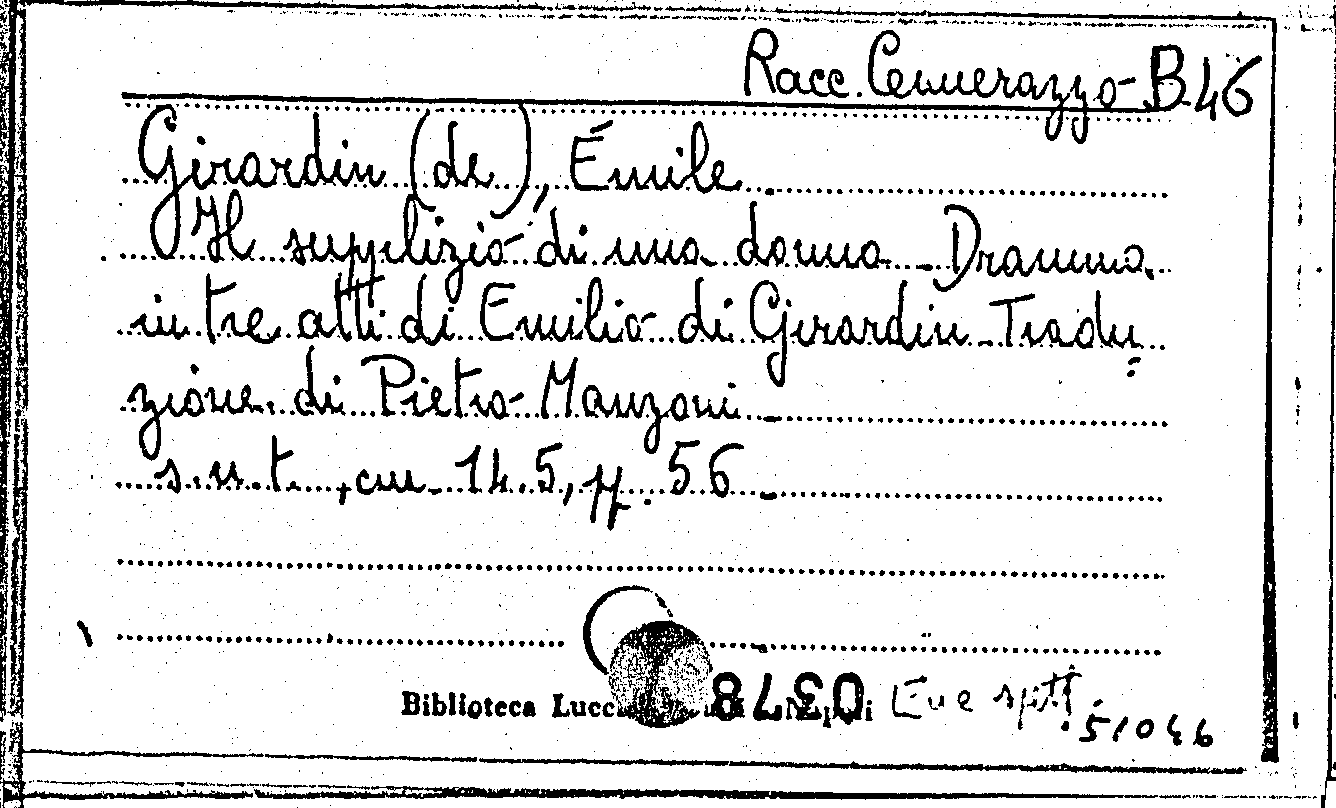 Racc. Cennerazzo - B 46
Girardin (de), Émile.
Il supplizio di una donna - Dramma
in tre atti di Emilio di Girardin - Tradu=
zione di Pietro Manzoni -
s.n.t., cm 14.5, pp. 56 -
Biblioteca Lucc
51046